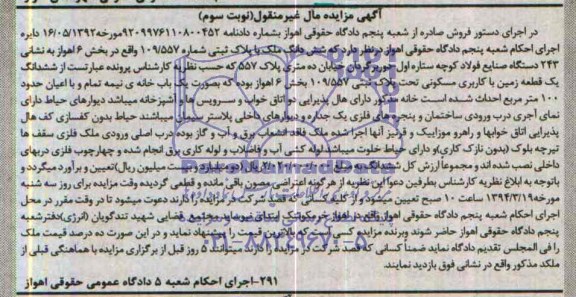 آگهی مزایده مال غیرمنقول(نوبت سوم)
در اجرای دستور فروش صادره از شعبه پنجم دادگاه حقوقی اهواز بشماره دادنامه ۹۲۰۹۹۷۶۱۱۰۸۰۰۴۵۲مورخه۱۶/۰۵/۱۳۹۲ دایره
اجرای احکام شعبه پنجم دادگاه حقوقی اهواز درنظر دارد که شش دانگ ملک با پلاک ثبتی شماره ۱۰۹/۵۵۷ واقع در بخش ۶ اهواز به نشانی
۲۴۳ دستگاه صنایع فولاد کوچه ستاره اول خیابان ده متری پلاک ۵۵۷ که حسب نظریه کارشناس پرونده عبارتست از ششدانگ
یک قطعه زمین با کاربری مسکونی تحت پلاک ثبتی ۱۰۹/۵۵۷ بخش ۶ اهواز بوده که بصورت یک باب خانه ی نیمه تمام و با اعیان حدود
۱۰۰ متر مربع احداث شده است خانه مذکور دارای هال پذیرایی دو اتاق خواب و سرویس ها و آشپزخانه میباشد دیوارهای حیاط دارای
نمای آجری درب ورودی ساختمان و پنجره های فلزی یک جداره و دیوارهای داخلی پلاستر سیمان میباشند حیاط بدون کفسازی کف هال
پذیرایی اتاق خوابها و راهرو موزاییک و قرنیز آنها اجرا شده ملک فاقد انشعاب برق و آب و گاز بوده درب اصلی ورودی ملک فلزی سقف ها
تیرچه بلوک (بدون نازک کاری)و دارای حیاط خلوت میباشد لوله کشی آب و فاضلاب و لوله کاری برق انجام شده و چهارچوب فلزی دربهای
داخلی نصب شده اند و مجموعاً ارزش کل ششدانگ به مبلغ ریال میلیون ریال)تعیین و برآورد میگردد و
باتوجه به ابلاغ نظریه کارشناس بطرفین دعوا این نظریه از هرگونه اعتراضی مصون باقی مانده و قطعی گردیده وقت مزایده برای روز سه شنبه
مورخه۱۳۹۴/۳/۱۹ ساعت ۱۰ صبح تعیین میشود و از کلیه کسانی که قصد شرکت در مزایده را دارند دعوت میشود تا در وقت مقرر در محل
اجرای احکام شعبه پنجم دادگاه حقوقی اهواز واقع در اهواز مجتمع قضایی شهید تندگویان (انرژی)دفترشعبه
پنجم دادگاه حقوقی اهواز حاضر شوند وبرنده مزایده کسی است که بالاترین قیمت را پیشنهاد نماید و در این صورت ده درصد قیمت ملک
را فی المجلس تقدیم دادگاه نماید ضمناً کسانی که قصد شرکت در مزایده را دارند میتوانند ۵ روز قبل از برگزاری مزایده با هماهنگی قبلی از
ملکد مذکور واقع در نشانی فوق بازدید نمایند.
۲۹۱-اجرای احکام شعبه ۵ دادگاه عمومی حقوقی اهواز
ParsNamadData
۰۲۱-۸۸۳۴۹۶۷۰-۵